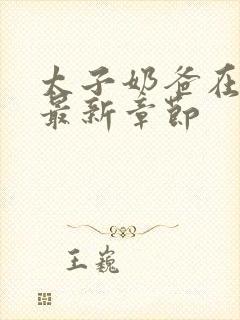 太子奶爸在
最新章节
王巍